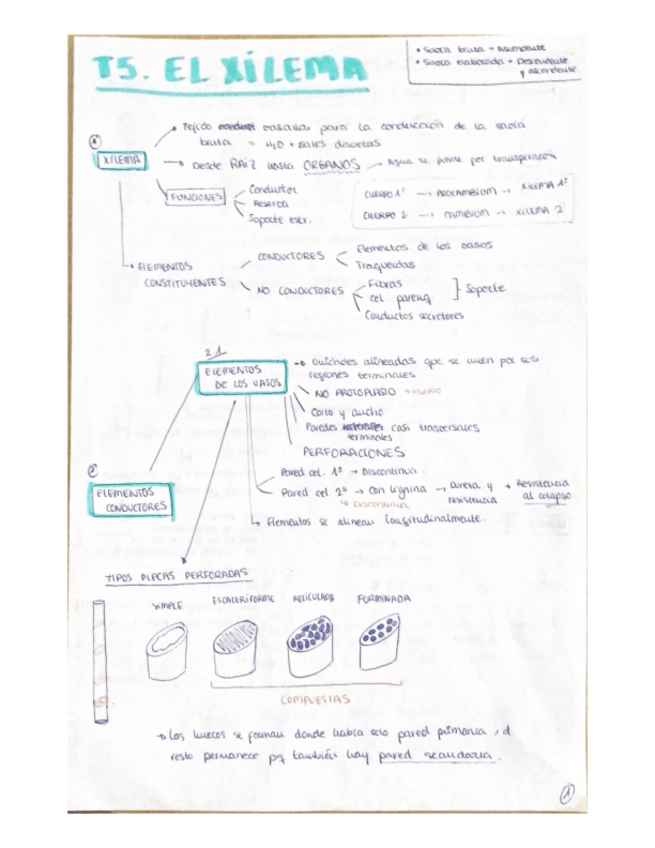 T5. EL XILEMA
• Savia bruta → Ascendente
• Savia elaborada → Descendente
y ascendente
①
XILEMA
→ Tejido vascular para la conducción de la savia
bruta = H2O + sales disueltas
→ Desde RAIZ hasta ORGANOS → Agua se pierde por transpiración
FUNCIONES
Conductor
Reserva
Soporte estr.
CUERPO 1º → PROCAMBIUM → XILEMA 1º
CUERPO 2 → CAMBIUM → XILEMA 2
→ ELEMENTOS
CONSTITUYENTES
CONDUCTORES
Elementos de los vasos
Traqueidas
NO CONDUCTORES
Fibras
cel. parenq.
} Soporte
Conductos secretores
2.1
ELEMENTOS
DE LOS VASOS
→ Unidades alineadas que se unen por sus
regiones terminales
NO PROTOPLASTO → muerto
Corto y ancho
Paredes laterales casi trasversales
terminales
PERFORACIONES
Pared cel. 1ª → Discontinua
Pared cel 2ª → con lignina → dureza y
resistencia
→ Resistencia
al colapso
↳ DISCONTINUA
↳ Elementos se alinean longitudinalmente.
②
ELEMENTOS
CONDUCTORES
TIPOS PLACAS PERFORADAS
SIMPLE
ESCALERIFORME
RETICULADA
FORMINADA
COMPUESTAS
→ Los huecos se forman donde había solo pared primaria, el
resto permanece pq también hay pared secundaria.
①